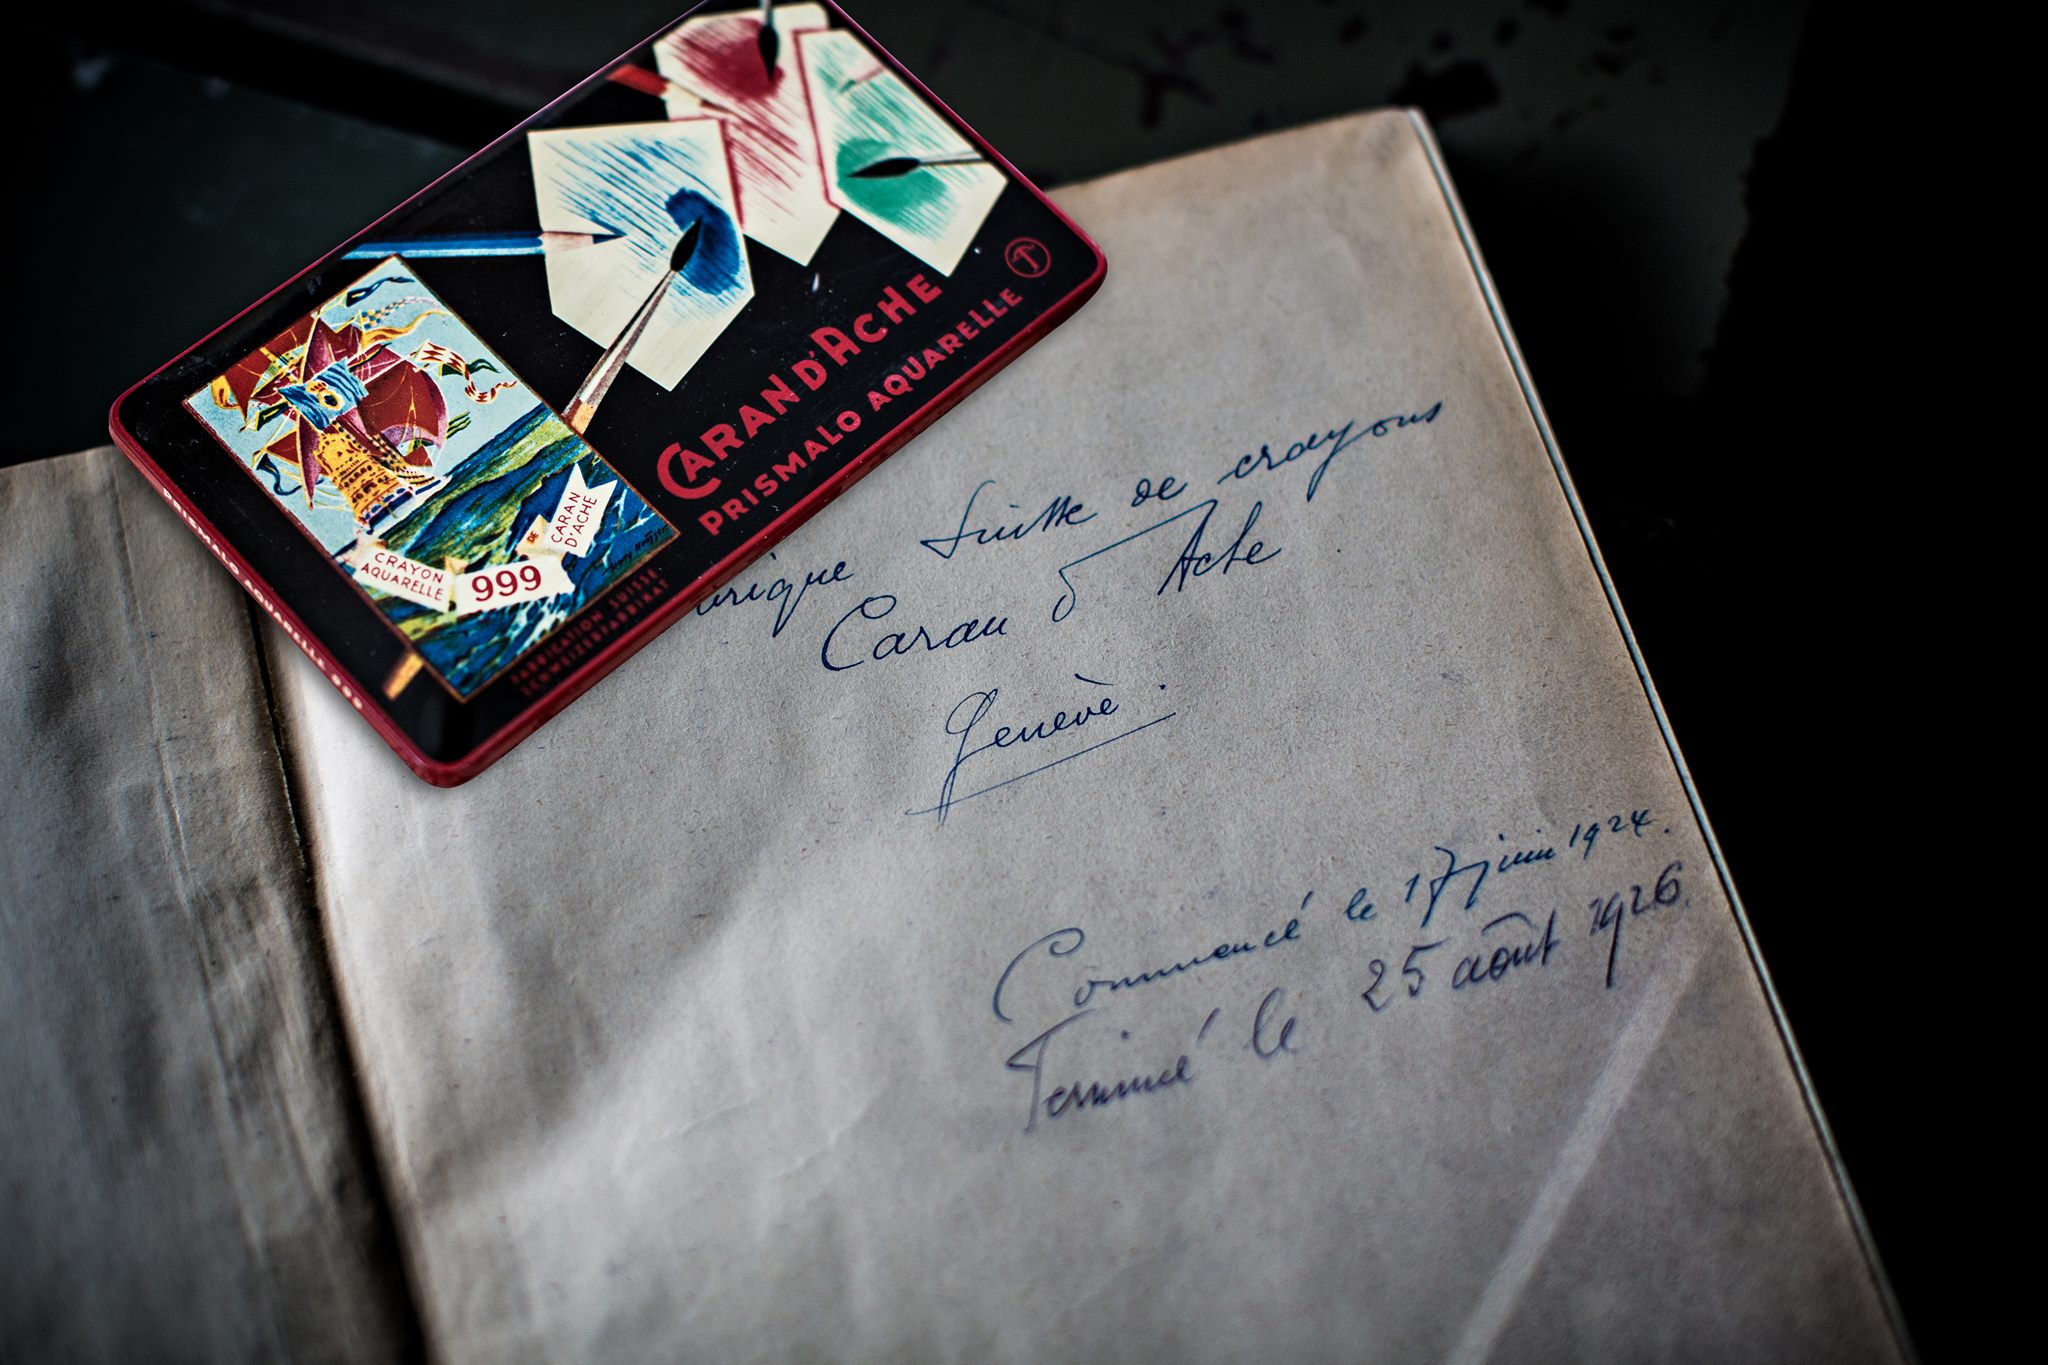 CARAN D'ACHE
PRISMALO AQUARELLE
CRAYON
AQUARELLE
999
DE
CARAN
D'ACHE
FABRICATION SUISSE
SCHWEIZERFABRIKAT
PRISMALO AQUARELLE 999
brique Suisse de crayons
Caran d'Ache
Genève.
Commencé le 17 juin 1924.
Terminé le 25 août 1926.